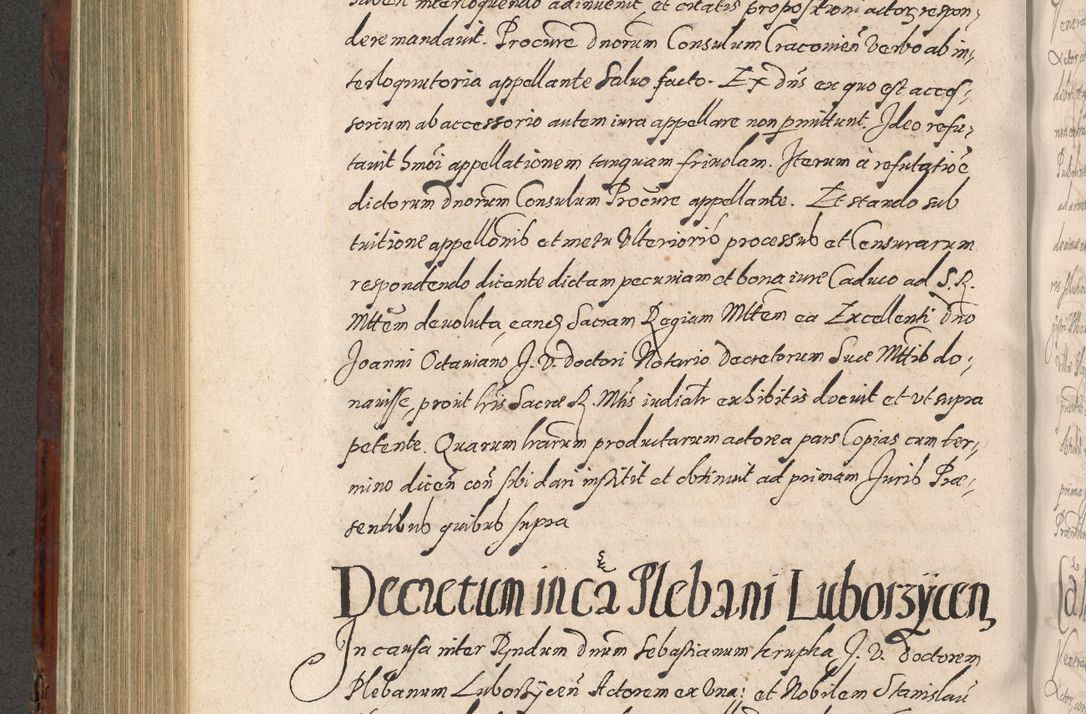 suben interloquendo adinuenit, et citatis propositioni actor, respon,
dere mandauit. Procure Dnorum Consulum Cracouien̄ Verbo ab in,
terloquutoria appellante saluo facto. Et Dns̄ ex quo est acces,
sorium ab accessorio autem iura appellare non pmittunt. Ideo refu,
tauit hmōi appellationem tanquam friuolam. Iterum à refutatioē
dictorum Dnorum Consulum Procūre appellante. Et stando sub
tuitione appellonis et metu Vlterioris processus et Censurarum
respondendo dicente dictam pecuniam et bona iure Caduco ad S. R.
Mttēm deuoluta, eanq̃ Sacram Regiam Mttem ea Excellenti Dno
Joanni Octauiano J. V. Doctori Notario Decretorum Suæ Mttis do,
nauisse, prout lrīs Sacræ R. Mtis iudialr exhibitis docuit et vt supra
petente. Quarum lrarum productarum actorea pars Copias cum ter,
mino dicen̄ con̄ sibi dari institit et obtinuit ad primam Juris Præ,
sentibus quibus supra
Decretum in cā Plebani Luborzÿcen,
In causa inter Rndum Dnum Sebastianum Krupka J. V. Doctorem
Plebanum Luborzÿcen̄ Actorem ex Vna: et Nobilem Stanislau̅